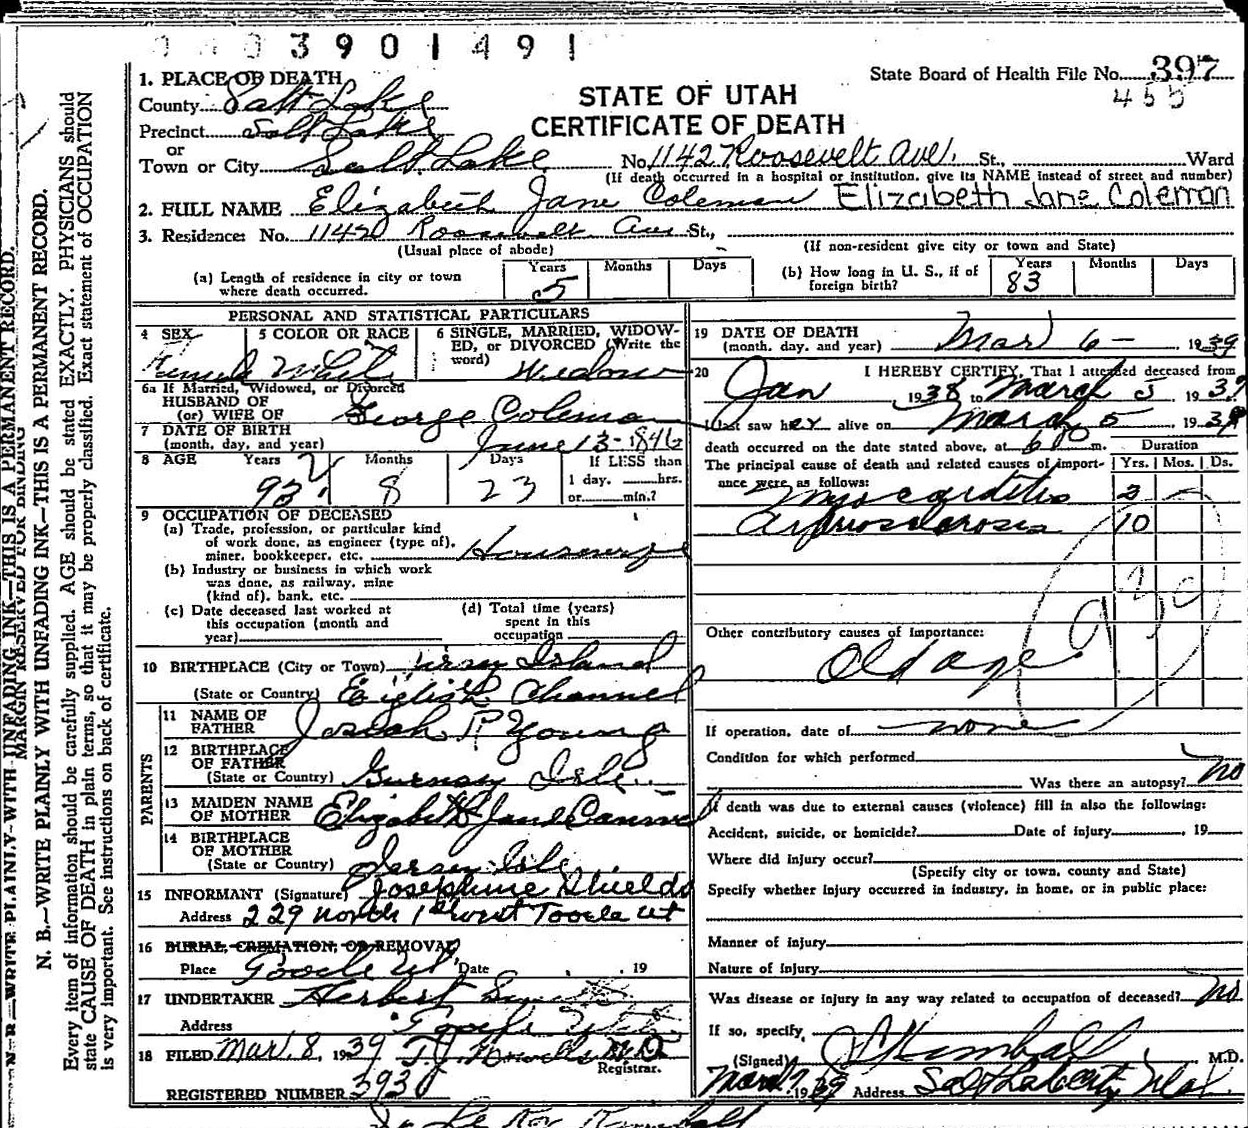 3901491
1. PLACE OF DEATH
State Board of Health File No. 397
455
County Salt Lake
STATE OF UTAH
Precinct Salt Lake
CERTIFICATE OF DEATH
or
Town or City Salt Lake No. 1142 Roosevelt Ave. St., Ward
(If death occurred in a hospital or institution, give its NAME instead of street and number)
2. FULL NAME Elizabeth Jane Coleman Elizabeth Jane Coleman
3. Residence: No. 1142 Roosevelt Ave St.,
(Usual place of abode) (If non-resident give city or town and State)
(a) Length of residence in city or town where death occurred. Years 5 Months Days
(b) How long in U. S., if of foreign birth? Years 83 Months Days
PERSONAL AND STATISTICAL PARTICULARS
4 SEX Female
5 COLOR OR RACE White
6 SINGLE, MARRIED, WIDOWED, or DIVORCED (Write the word) Widow
6a If Married, Widowed, or Divorced
HUSBAND OF
(or) WIFE OF George Coleman
7 DATE OF BIRTH
(month, day, and year) June 13-1846
8 AGE Years 92 Months 8 Days 23 If LESS than
1 day, hrs.
or min.?
9 OCCUPATION OF DECEASED
(a) Trade, profession, or particular kind
of work done, as engineer (type of),
miner, bookkeeper, etc. Housewife
(b) Industry or business in which work
was done, as railway, mine
(kind of), bank, etc.
(c) Date deceased last worked at
this occupation (month and
year)
(d) Total time (years)
spent in this
occupation
10 BIRTHPLACE (City or Town) Island
(State or Country) English Channel
PARENTS
11 NAME OF
FATHER Josiah P. Young
12 BIRTHPLACE
OF FATHER
(State or Country) Gurnsey Isle
13 MAIDEN NAME
OF MOTHER Elizabeth Jane
14 BIRTHPLACE
OF MOTHER
(State or Country) Jersey Isle
15 INFORMANT (Signature) Josephine Shields
Address 229 North 1st West Tooele Ut
16 BURIAL, CREMATION, OR REMOVAL
Place Tooele Ut. Date , 19
17 UNDERTAKER Herbert
Address Tooele
18 FILED Mar. 8, 1939 T.J. Howells M.D.
Registrar.
REGISTERED NUMBER 393
19 DATE OF DEATH
(month, day, and year) Mar 6- 1939
20 I HEREBY CERTIFY, That I attended deceased from
Jan 1938 to March 5 1939
I last saw her alive on March 5 1939
death occurred on the date stated above, at 6 m.
Duration
The principal cause of death and related causes of importance were as follows: Yrs. Mos. Ds.
Myocarditis 2
Arteriosclerosis 10
Other contributory causes of importance:
Old age.
If operation, date of none
Condition for which performed
Was there an autopsy? no
If death was due to external causes (violence) fill in also the following:
Accident, suicide, or homicide? Date of injury , 19
Where did injury occur?
(Specify city or town, county and State)
Specify whether injury occurred in industry, in home, or in public place:
Manner of injury
Nature of injury
Was disease or injury in any way related to occupation of deceased? no
If so, specify,
(Signed) Kimball M.D.
March 7 1939 Address Salt Lake City Utah
MARGIN RESERVED FOR BINDING
N. B.—WRITE PLAINLY WITH UNFADING INK—THIS IS A PERMANENT RECORD.
N. B.—WRITE PLAINLY WITH UNFADING INK—THIS IS A PERMANENT RECORD.
Every item of information should be carefully supplied. AGE should be stated EXACTLY. PHYSICIANS should
state CAUSE OF DEATH in plain terms, so that it may be properly classified. Exact statement of OCCUPATION
is very important. See instructions on back of certificate.